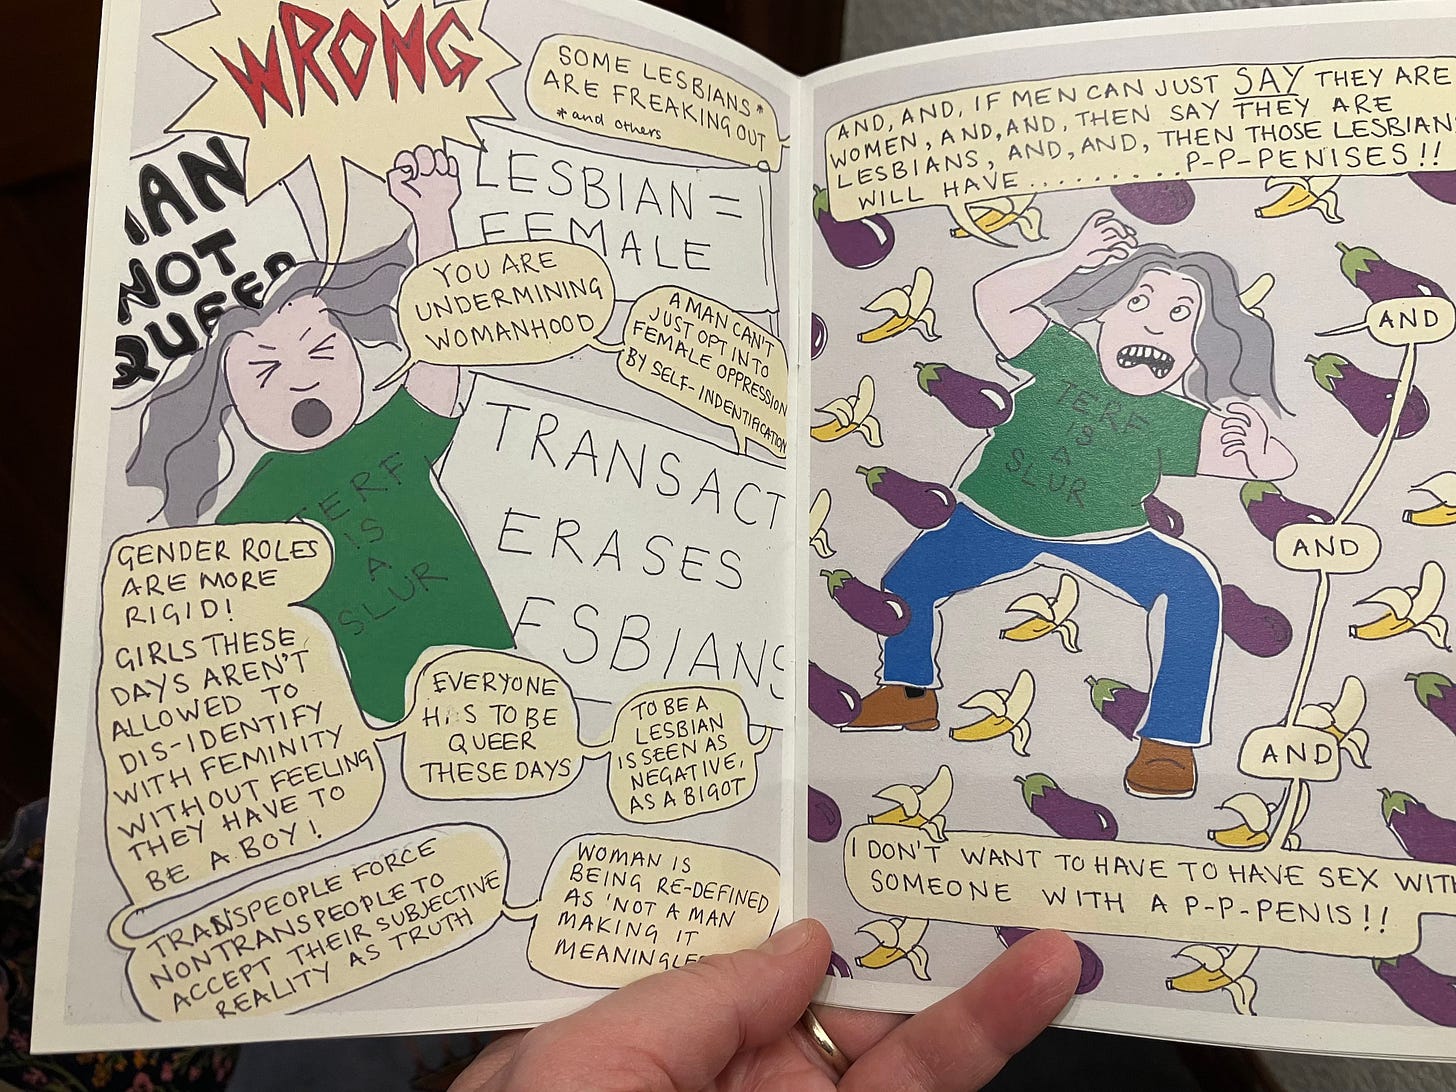 WRONG
SOME LESBIANS*
ARE FREAKING OUT
*and others
NOT
LESBIAN =
FEMALE
YOU ARE
UNDERMINING
WOMANHOOD
A MAN CAN'T
JUST OPT INTO
FEMALE OPPRESSION
BY SELF-INDENTIFICATION
TRANSACT
ERASES
ESBIANS
TERF
IS
A
SLUR
GENDER ROLES
ARE MORE
RIGID!
GIRLS THESE
DAYS AREN'T
ALLOWED TO
DIS-IDENTIFY
WITH FEMINITY
WITHOUT FEELING
THEY HAVE TO
BE A BOY!
EVERYONE
HAS TO BE
QUEER
THESE DAYS
TO BE A
LESBIAN
IS SEEN AS
NEGATIVE,
AS A BIGOT
TRANSPEOPLE FORCE
NONTRANSPEOPLE TO
ACCEPT THEIR SUBJECTIVE
REALITY AS TRUTH
WOMAN IS
BEING RE-DEFINED
AS 'NOT A MAN
MAKING IT
AND, AND, IF MEN CAN JUST SAY THEY ARE
WOMEN, AND, AND, THEN SAY THEY ARE
LESBIANS, AND, AND, THEN THOSE LESBIAN
WILL HAVE..........P-P-PENISES!!
TERF
IS
A
SLUR
AND
AND
AND
I DON'T WANT TO HAVE TO HAVE SEX WITH
SOMEONE WITH A P-P-PENIS!!